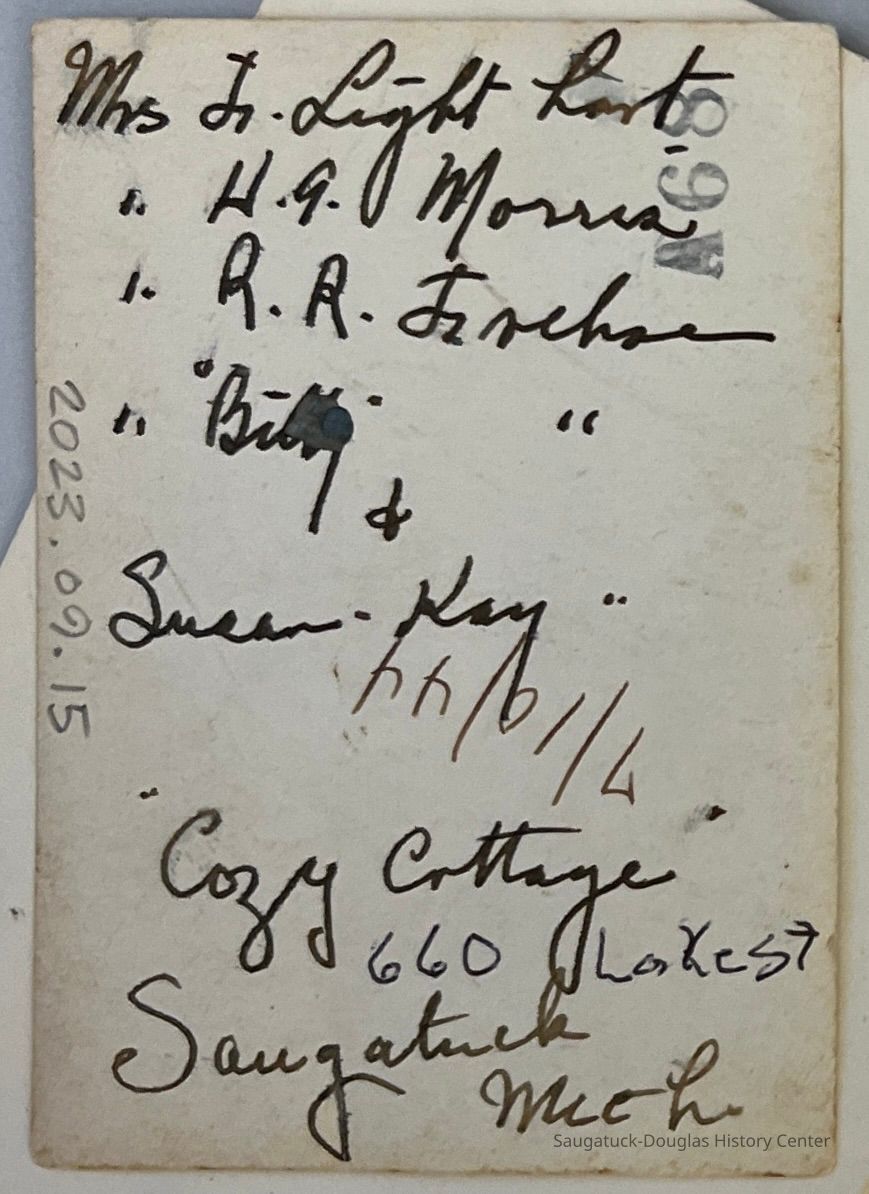 Mrs Fr. Light hart
" H. G. Morris
" R. R. Finehoe
" "Billy" "
&
Susan - Kay "
"Cozy Cottage"
660 Lake St
Saugatuck
Mich.
2023.09.15
Saugatuck-Douglas History Center